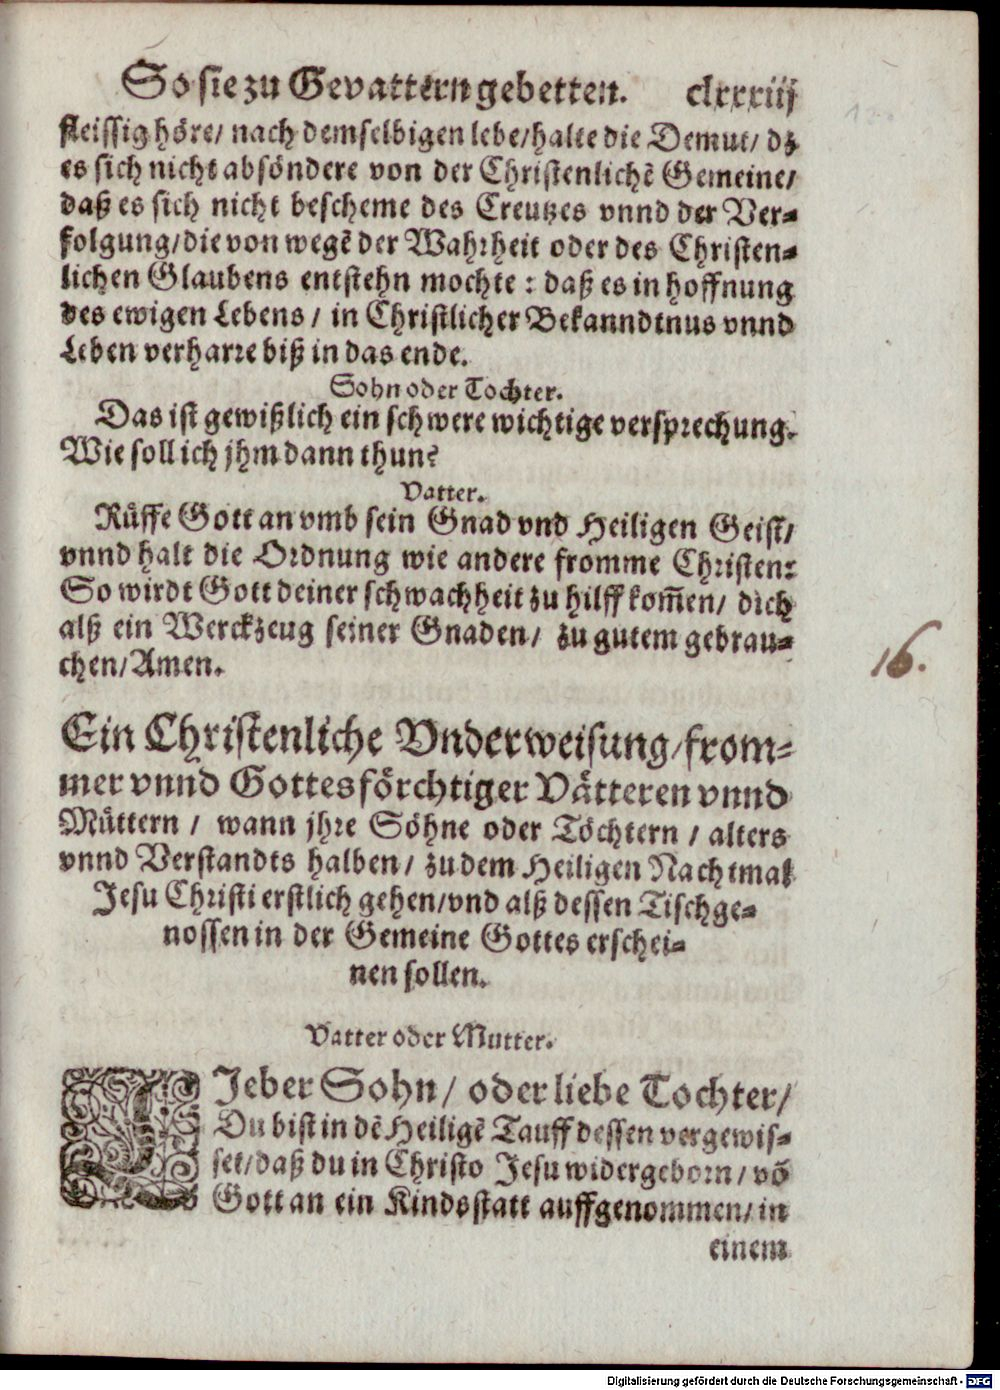 So sie zu Gevattern gebetten. clxxxiij
fleissig höre/ nach demselbigen lebe/halte die Demut/ dz
es sich nicht absöndere von der Christenlichẽ Gemeine/
daß es sich nicht bescheme des Creutzes vnnd der Ver-
folgung/die von wegẽ der Wahrheit oder des Christen-
lichen Glaubens entstehn mochte : daß es in hoffnung
des ewigen Lebens / in Christlicher Bekanndtnus vnnd
Leben verharre biß in das ende.
Sohn oder Tochter.
Das ist gewißlich ein schwere wichtige versprechung.
Wie soll ich jhm dann thun?
Vatter.
Rüffe Gott an vmb sein Gnad vnd Heiligen Geist/
vnnd halt die Ordnung wie andere fromme Christen:
So wirdt Gott deiner schwachheit zu hilff kom̃en/ dich
alß ein Werckzeug seiner Gnaden/ zu gutem gebrau-
chen/Amen.
16.
Ein Christenliche Vnderweisung/from-
mer vnnd Gottesförchtiger Vätteren vnnd
Müttern / wann jhre Söhne oder Töchtern / alters
vnnd Verstandts halben/ zu dem Heiligen Nachtmal
Jesu Christi erstlich gehen/vnd alß dessen Tischge-
nossen in der Gemeine Gottes erschei-
nen sollen.
Vatter oder Mutter.
LJeber Sohn/ oder liebe Tochter/
Du bist in dẽ Heiligẽ Tauff dessen vergewis-
set/daß du in Christo Jesu widergeborn/ võ
Gott an ein Kindsstatt auffgenommen/in
einem
Digitalisierung gefördert durch die Deutsche Forschungsgemeinschaft - DFG